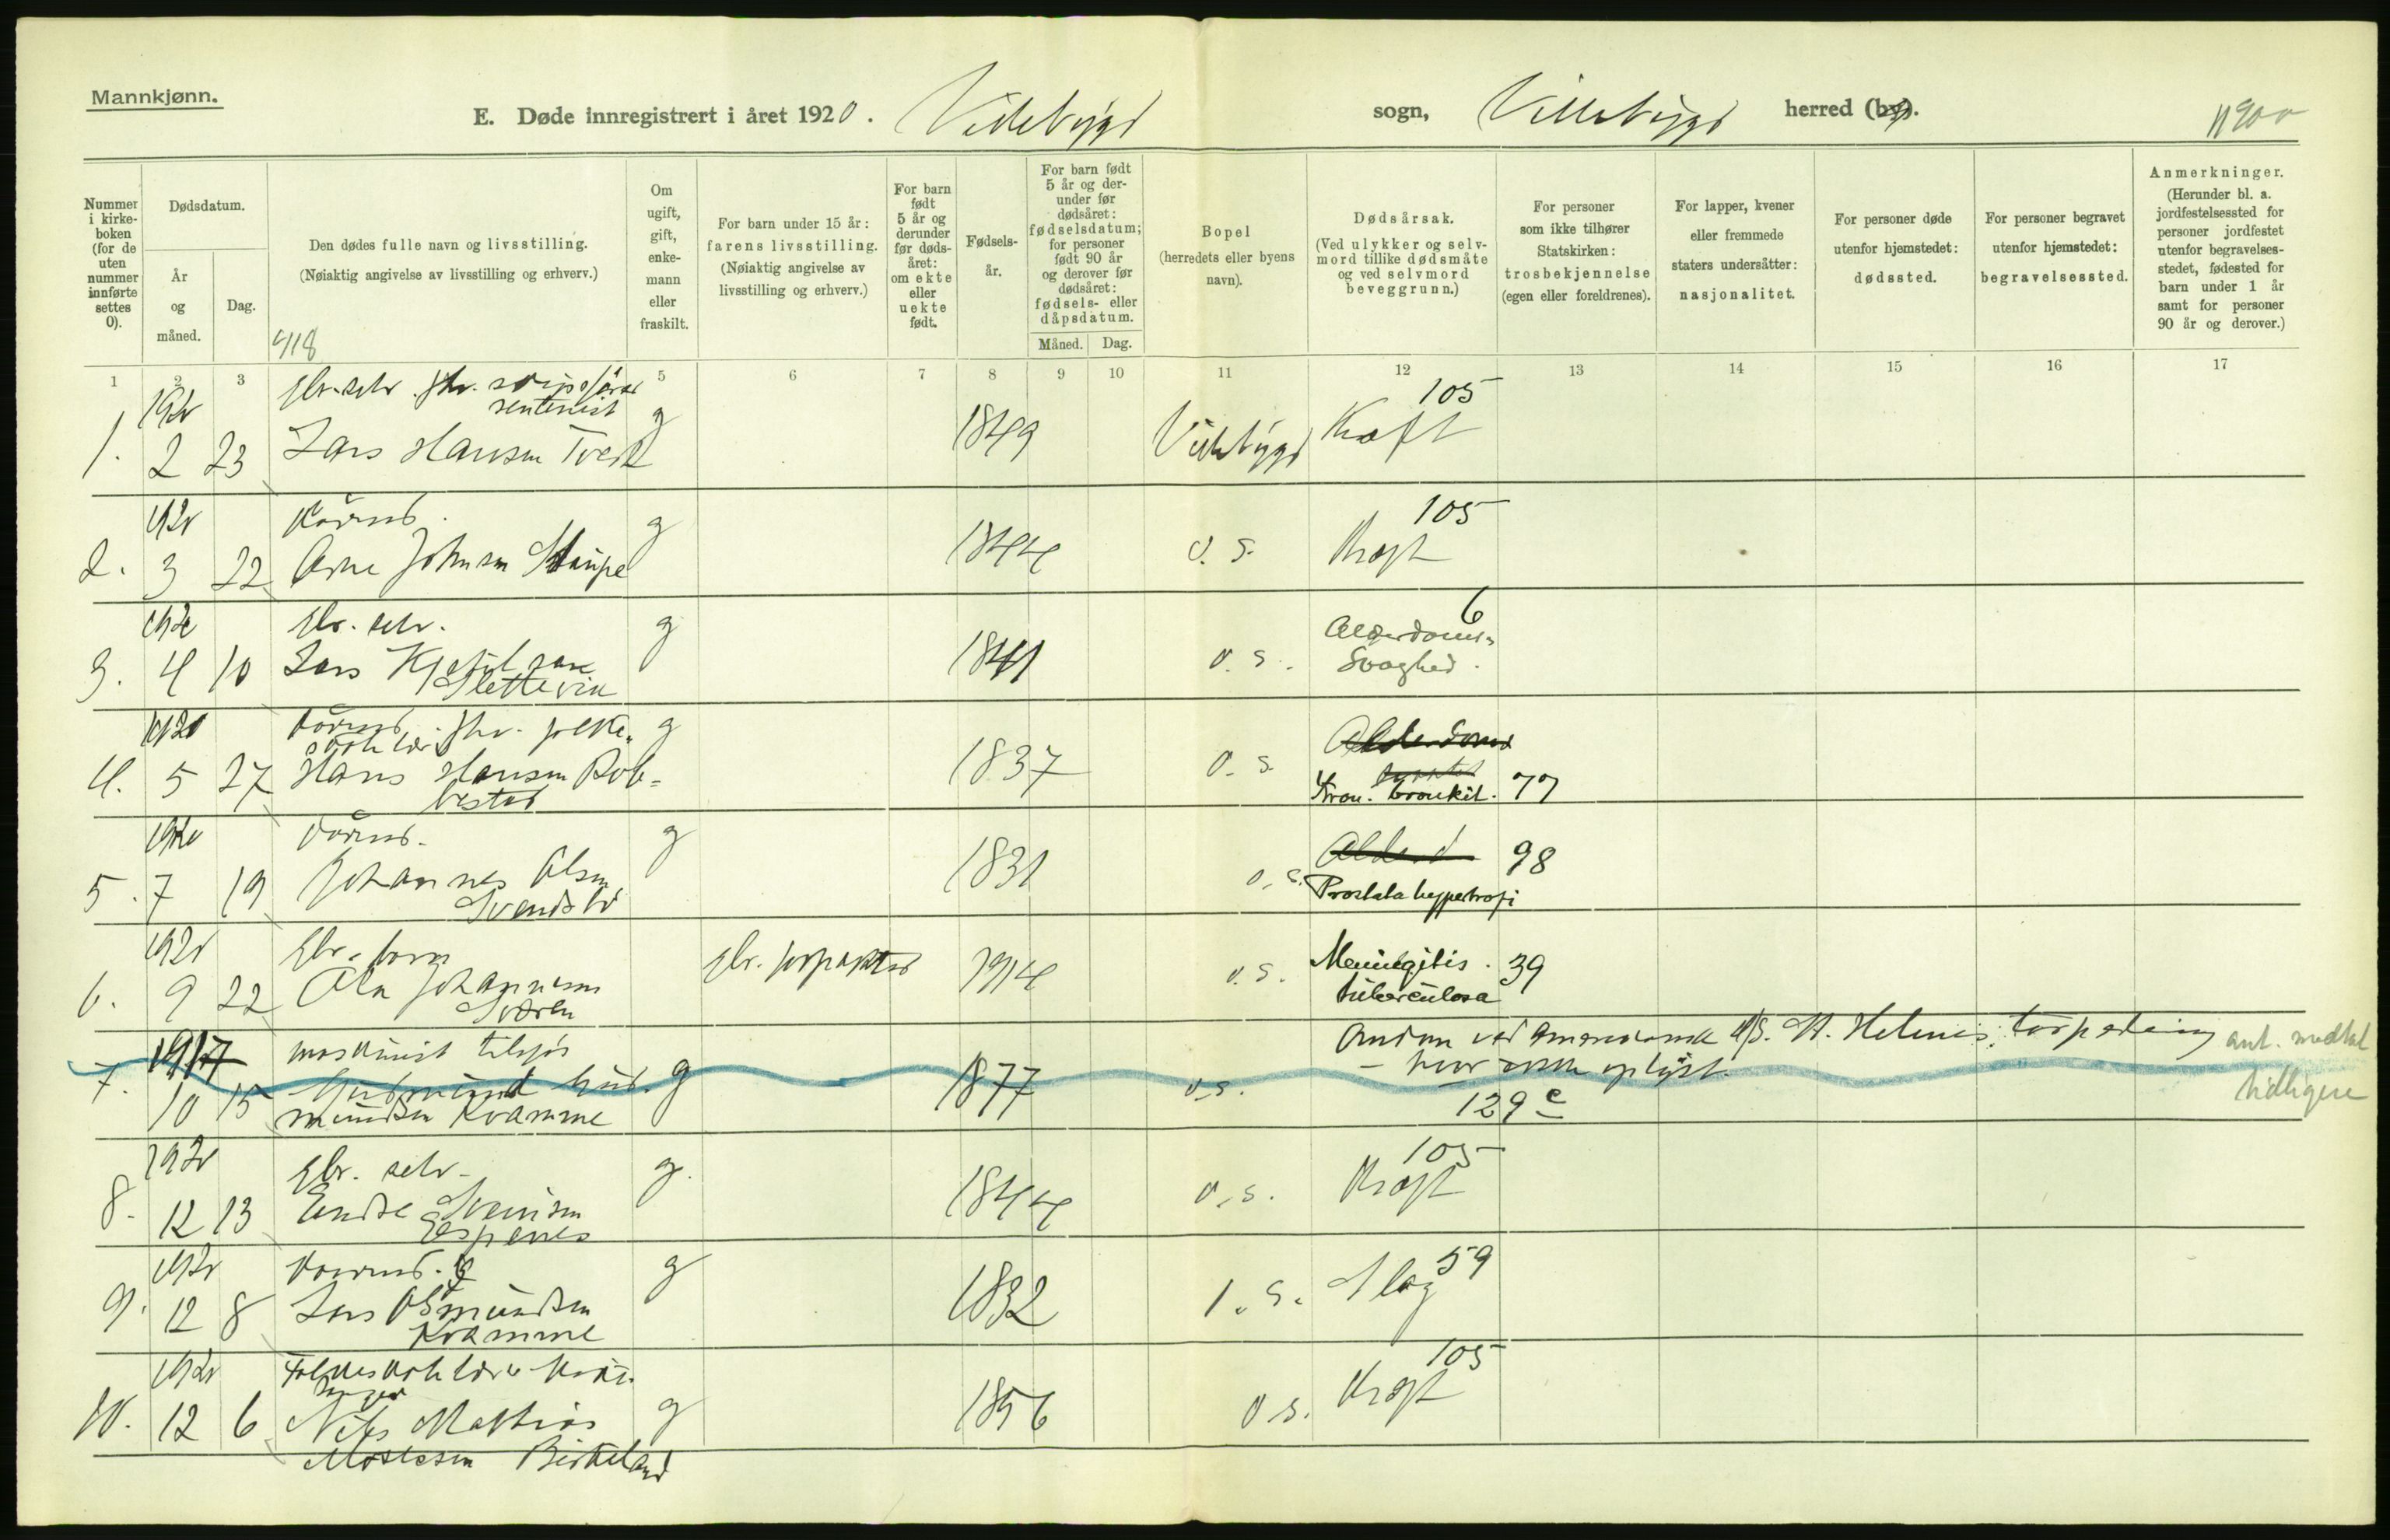 Mannkjønn.
E. Døde innregistrert i året 1920. Vikebygd sogn, Vikebygd herred (by).
Nummer i kirkeboken (for de uten nummer innførte settes 0).
Dødsdatum.
År og måned.
Dag.
Den dødes fulle navn og livsstilling.
(Nøiaktig angivelse av livsstilling og erhverv.)
418
Om ugift, gift, enkemann eller fraskilt.
For barn under 15 år: farens livsstilling.
(Nøiaktig angivelse av livsstilling og erhverv.)
For barn født 5 år og derunder før dødsåret: om ekte eller uekte født.
Fødselsår.
For barn født 5 år og derunder før dødsåret: fødselsdatum; for personer født 90 år og derover før dødsåret: fødsels- eller dåpsdatum.
Måned. Dag.
Bopel
(herredets eller byens navn).
Dødsårsak.
(Ved ulykker og selvmord tillike dødsmåte og ved selvmord beveggrunn.)
For personer som ikke tilhører Statskirken: trosbekjennelse (egen eller foreldrenes).
For lapper, kvener eller fremmede staters undersåtter: nasjonalitet.
For personer døde utenfor hjemstedet: dødssted.
For personer begravet utenfor hjemstedet: begravelsessted.
Anmerkninger.
(Herunder bl. a. jordfestelsessted for personer jordfestet utenfor begravelsesstedet, fødested for barn under 1 år samt for personer 90 år og derover.)
1 2 3 5 6 7 8 9 10 11 12 13 14 15 16 17
1920 Gbr. selv. fhv. 105
1. 2 23 Lars Hansen Tveit g 1849 Vikebygd Kræft
1920 Kårmd. 105
2. 3 22 Arne Johnsen Staupe g 1844 d. s. Kræft
1920 Gbr. selv. 6
3. 4 10 Lars g 1841 d. s. Alderdoms-
Slettevik Svaghed.
1920 Kårmd. fhv. g Alderdom
4. 5 27 Hans Hansen 1837 d. s.
Kron. bronkit. 77
1920 Kårmd. g Alderd 98
5. 7 19 Johannes Olsen 1831 d. s. Prostatahypertrofi
1920 Gbr. barn Gbr. Meningitis. 39
6. 9 22 Ola Johannesen 1914 d. s. tuberculosa
1917 maskinist tilsjøs torpedering ant. medtat
7. Gudmund Gud- g 1877 d. s. tidligere
10 15 mundsen Kvamme 129 c
1920 Gbr. selv. g. 105
8. 12 13 Endre Sveinsen 1844 d. s. Kræft
Espenes
1920 Kårmd. g 59
9. 12 8 Lars 1832 d. s. Slag
Kvamme
1920 105
10. 12 6 Nils Mathias g 1856 d. s. Kræft
Birkeland